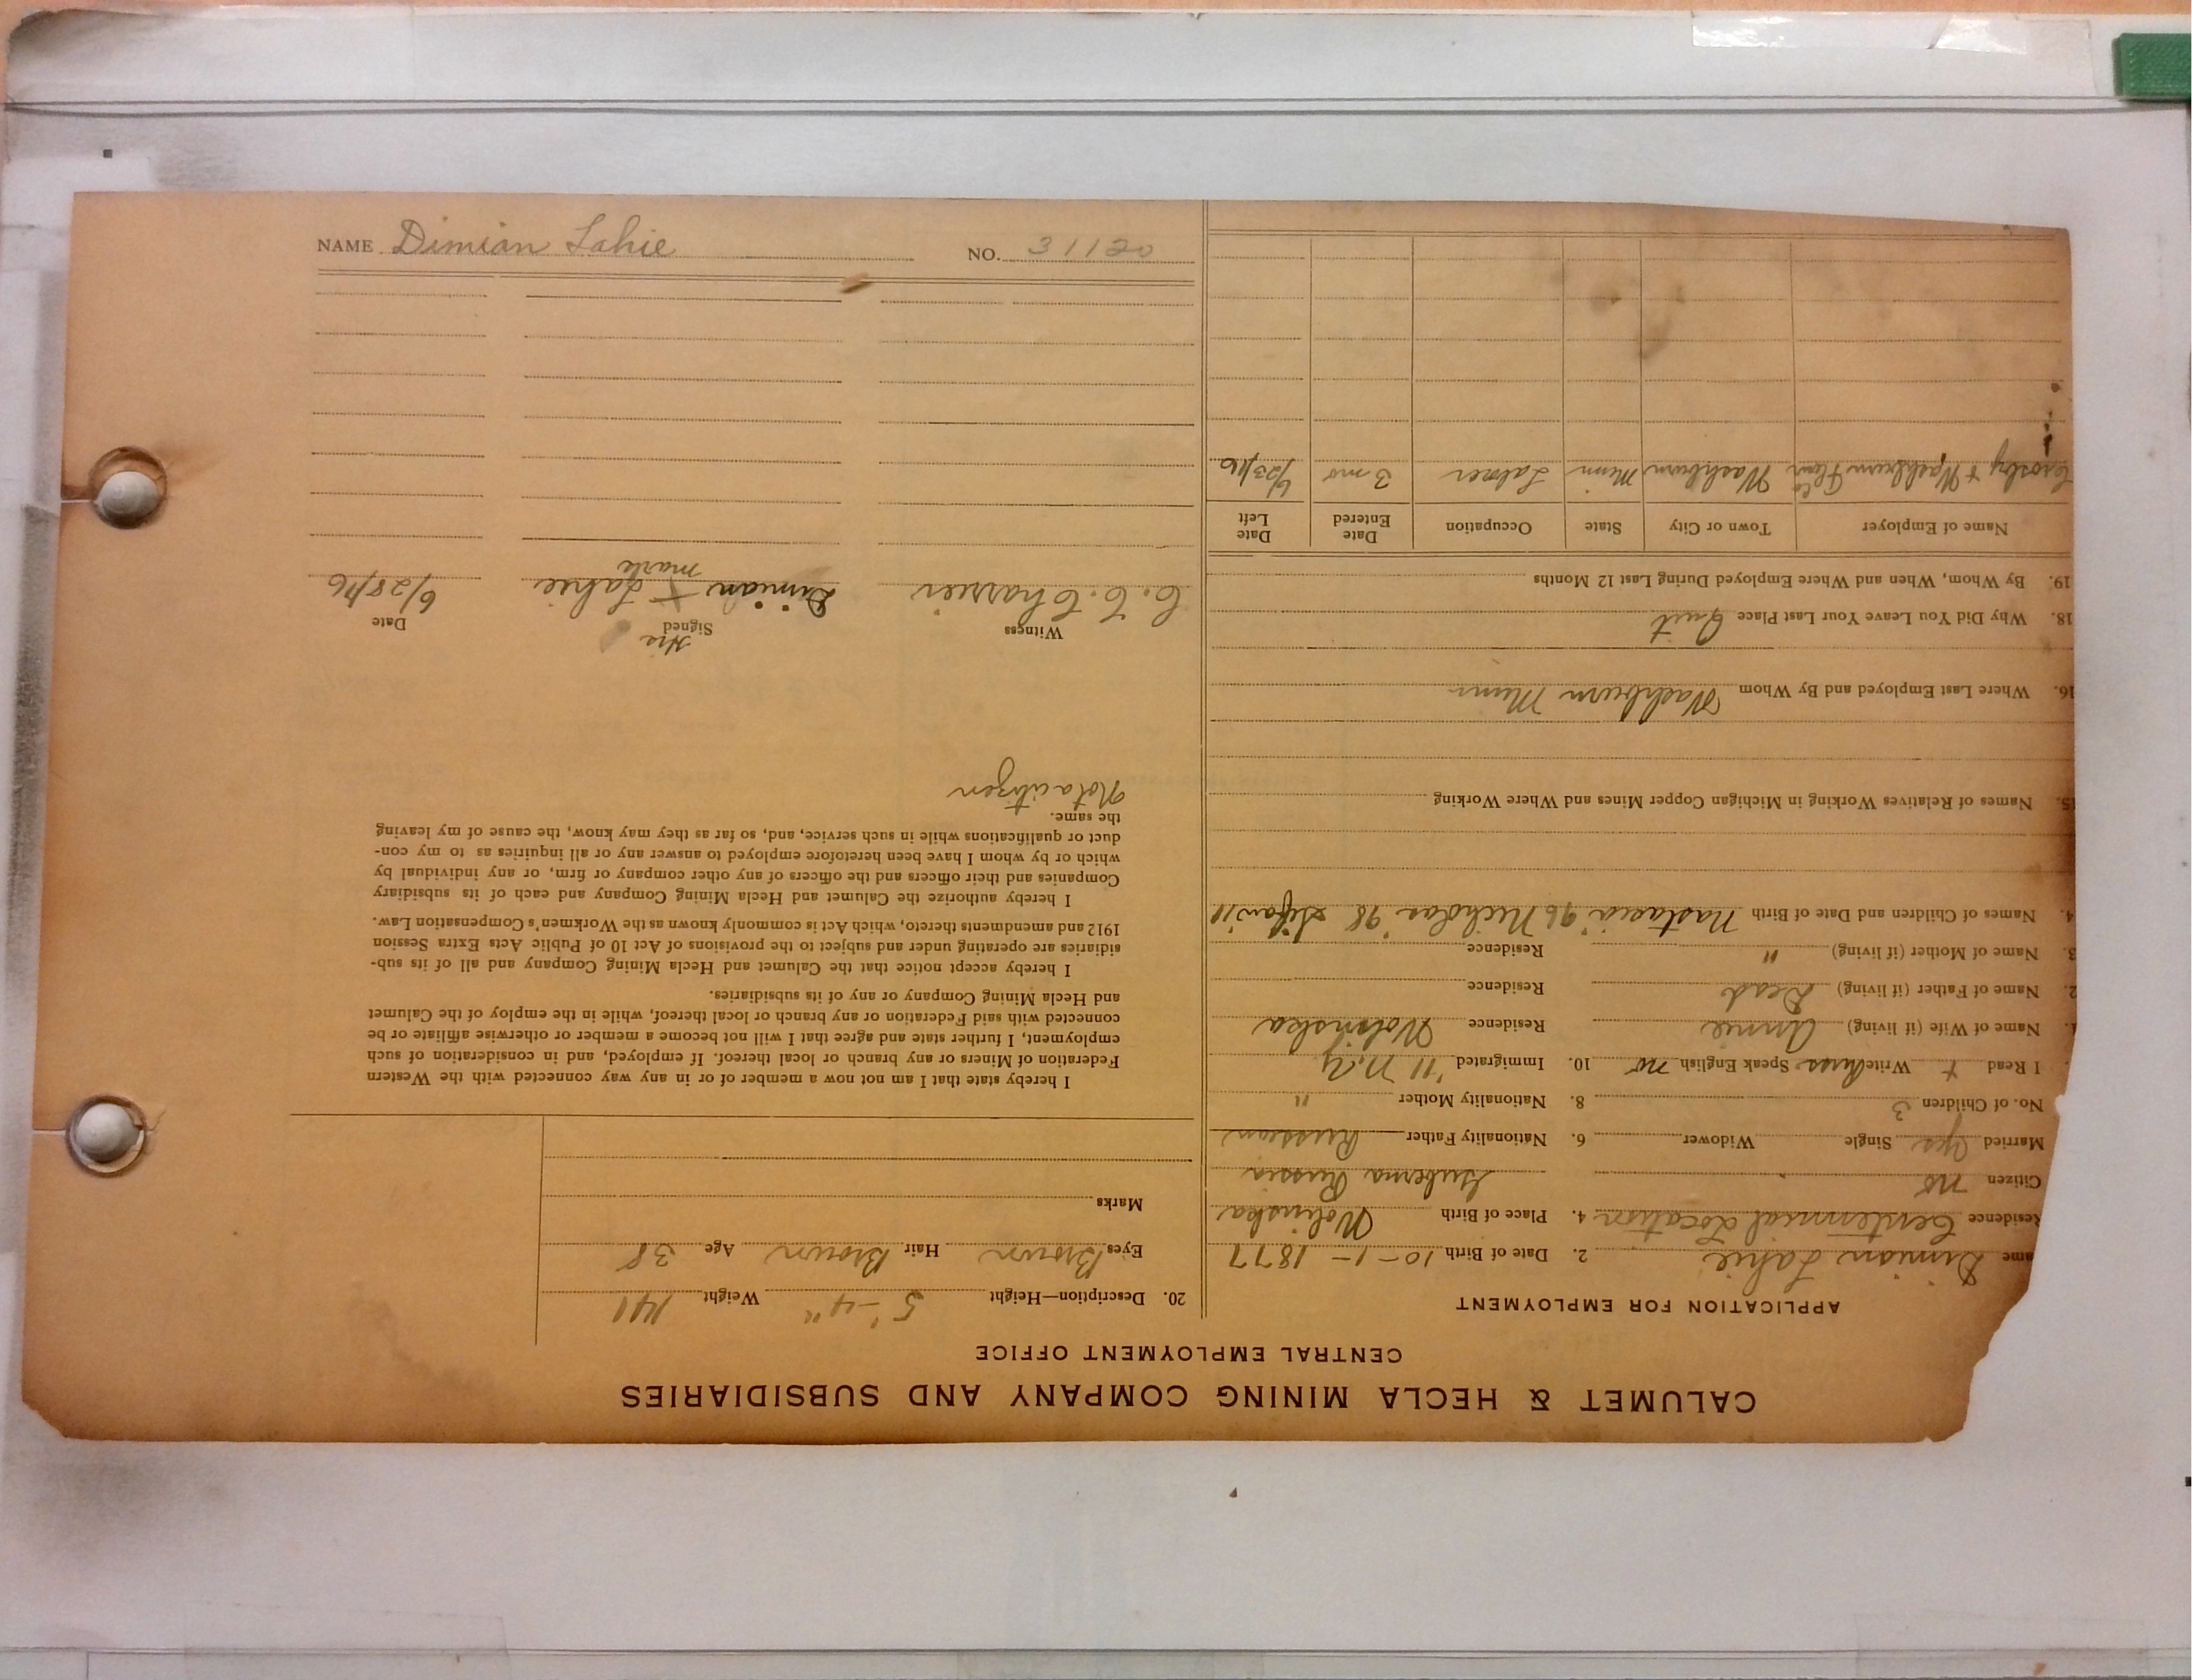 CALUMET & HECLA MINING COMPANY AND SUBSIDIARIES
CENTRAL EMPLOYMENT OFFICE
APPLICATION FOR EMPLOYMENT
ame Dimian Lahie 2. Date of Birth 10-1-1877
Residence Centennial Location 4. Place of Birth Wolinska
Citizen no Guberna Russia
Married yes Single Widower 6. Nationality Father Russian
No. of Children 3 8. Nationality Mother "
I Read + Write Speak English no 10. Immigrated '11 N.Y.
Name of Wife (if living) Annie Residence Wolinska
2. Name of Father (if living) Dead Residence
3. Name of Mother (if living) " Residence
4. Names of Children and Date of Birth Nastasia '96 Nicholas '98 Stefan '11
15. Names of Relatives Working in Michigan Copper Mines and Where Working
16. Where Last Employed and By Whom Washburn Minn
18. Why Did You Leave Your Last Place Quit
19. By Whom, When and Where Employed During Last 12 Months
Name of Employer Town or City State Occupation Date Entered Date Left
Crosby & Washburn Flour Co Washburn Minn Laborer 3 mo 6/23/16
20. Description—Height 5'-4" Weight 141
Eyes Brown Hair Brown Age 38
Marks
I hereby state that I am not now a member of or in any way connected with the Western
Federation of Miners or any branch or local thereof. If employed, and in consideration of such
employment, I further state and agree that I will not become a member or otherwise affiliate or be
connected with said Federation or any branch or local thereof, while in the employ of the Calumet
and Hecla Mining Company or any of its subsidiaries.
I hereby accept notice that the Calumet and Hecla Mining Company and all of its sub-
sidiaries are operating under and subject to the provisions of Act 10 of Public Acts Extra Session
1912 and amendments thereto, which Act is commonly known as the Workmen's Compensation Law.
I hereby authorize the Calumet and Hecla Mining Company and each of its subsidiary
Companies and their officers and the officers of any other company or firm, or any individual by
which or by whom I have been heretofore employed to answer any or all inquiries as to my con-
duct or qualifications while in such service, and, so far as they may know, the cause of my leaving
the same.
Not a citizen
Witness Signed His Date
Dimian + Lahie 6/28/16
mark
NAME Dimian Lahie NO. 31120